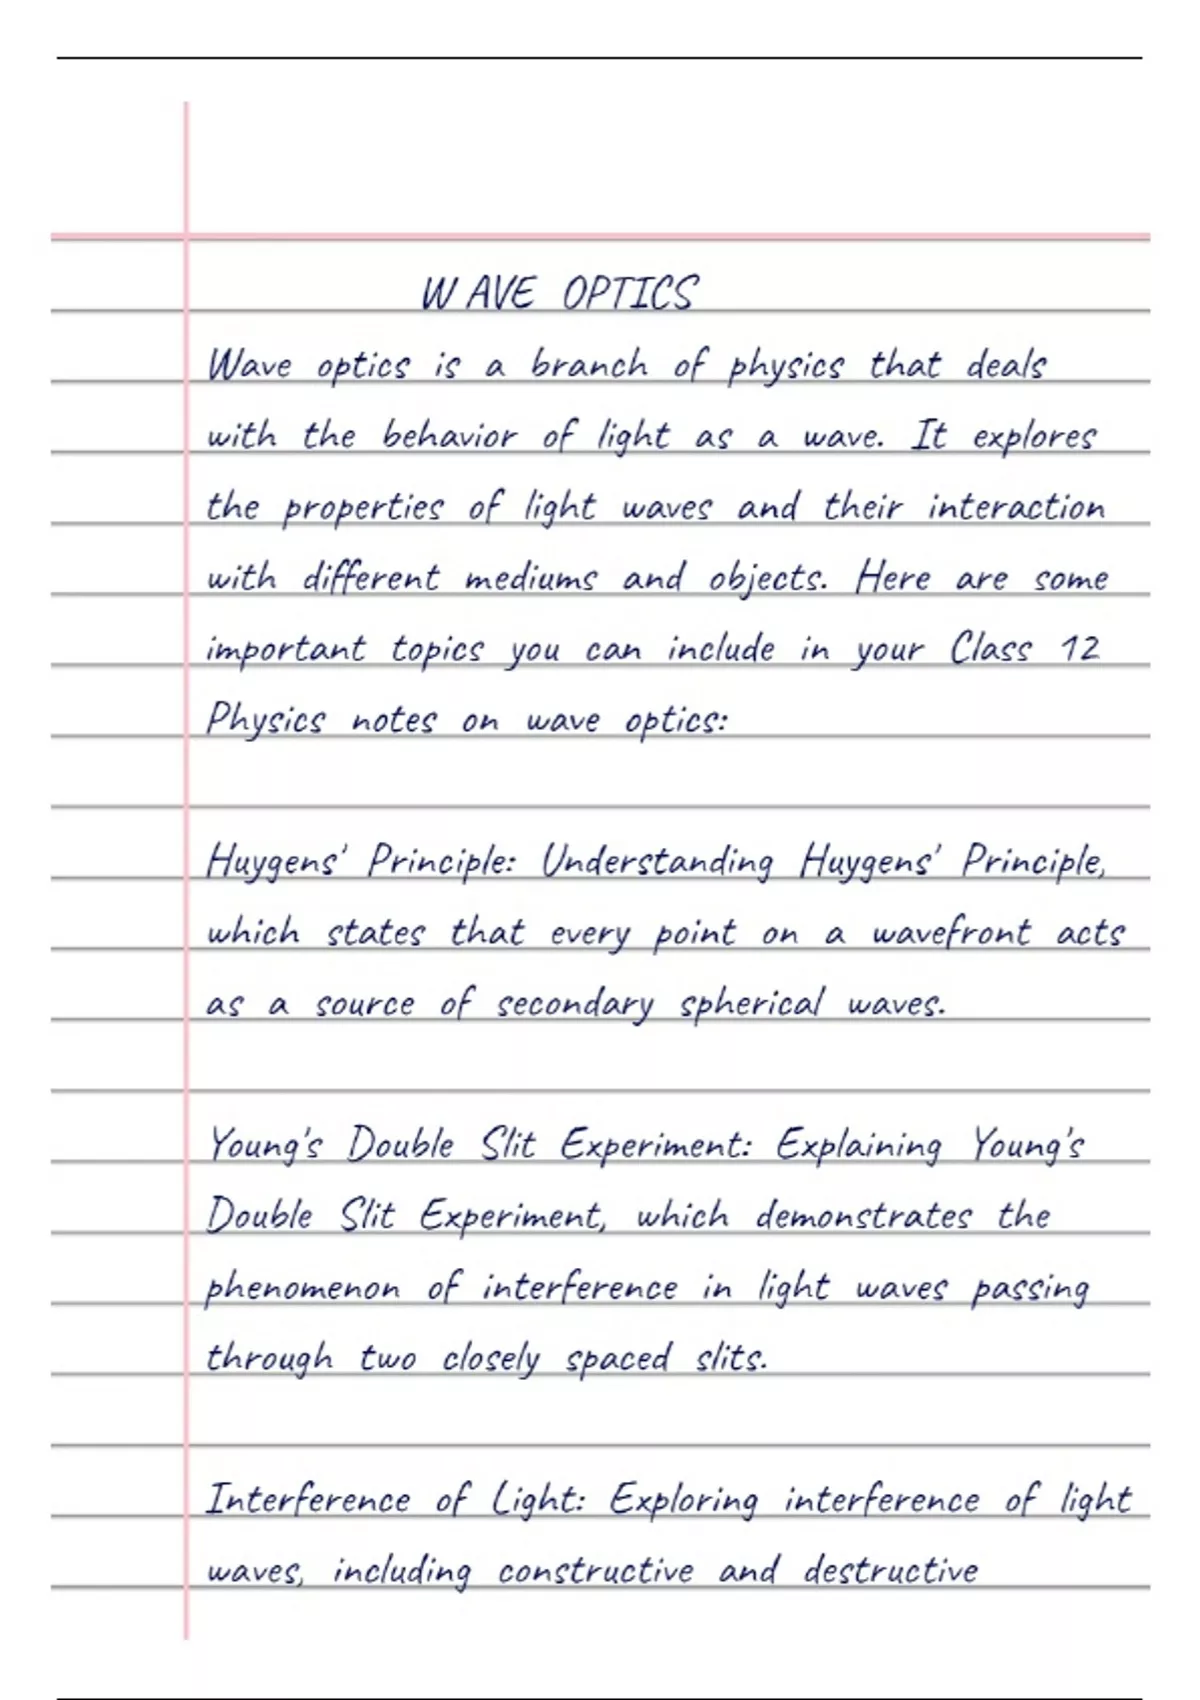 WAVE OPTICS
Wave optics is a branch of physics that deals
with the behavior of light as a wave. It explores
the properties of light waves and their interaction
with different mediums and objects. Here are some
important topics you can include in your Class 12
Physics notes on wave optics:
Huygens' Principle: Understanding Huygens' Principle,
which states that every point on a wavefront acts
as a source of secondary spherical waves.
Young's Double Slit Experiment: Explaining Young's
Double Slit Experiment, which demonstrates the
phenomenon of interference in light waves passing
through two closely spaced slits.
Interference of Light: Exploring interference of light
waves, including constructive and destructive